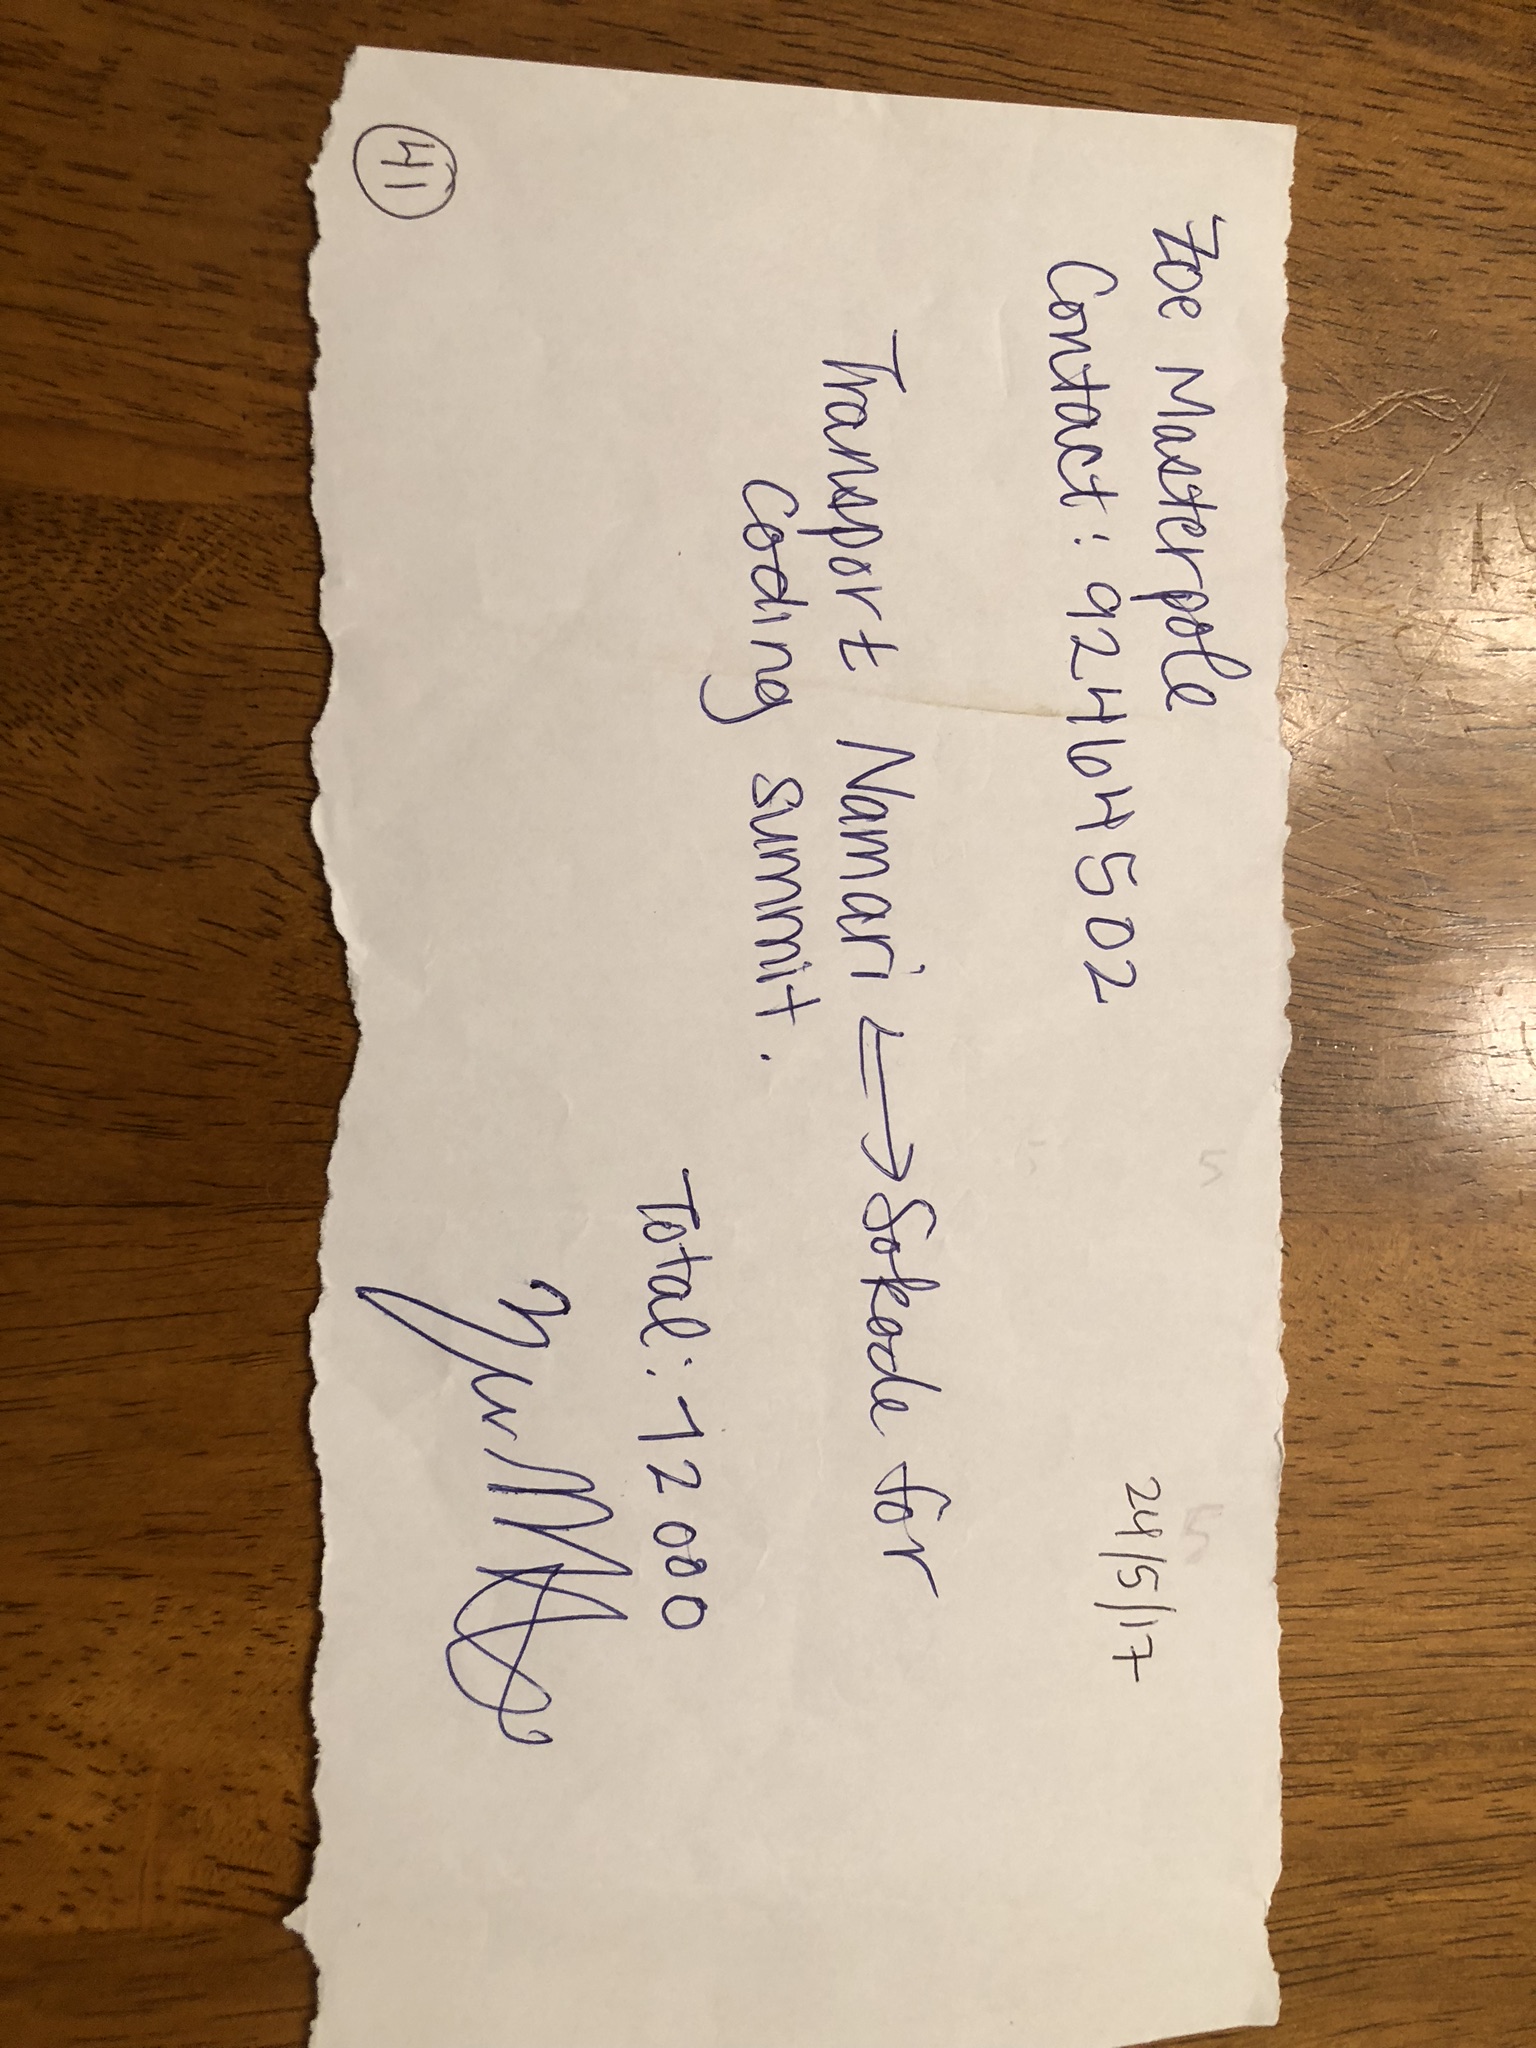 24/5/17
Zoe Masterpole
Contact: 92464502
Transport Namari ↔ Sokode for
Coding summit.
Total: 12000
41